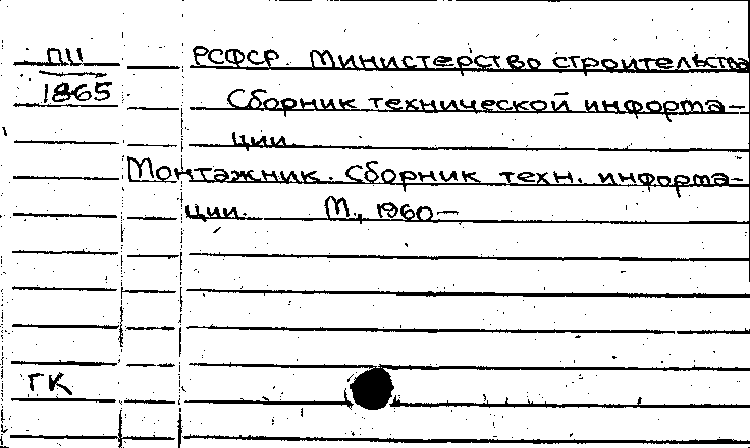 ПII РСФСР. Министерство строительства
1865 Сборник технической информа-
ции.
Монтажник. Сборник техн. информа-
ции. М., 1960—
ГК